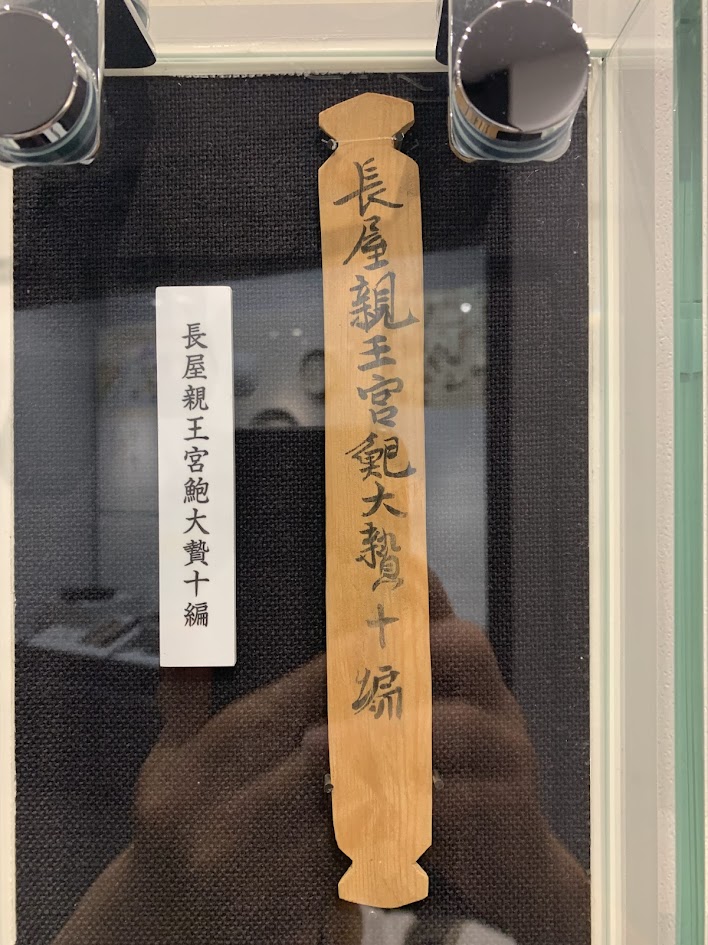 長屋親王宮鮑大贄十編
長屋親王宮鮑大贄十編